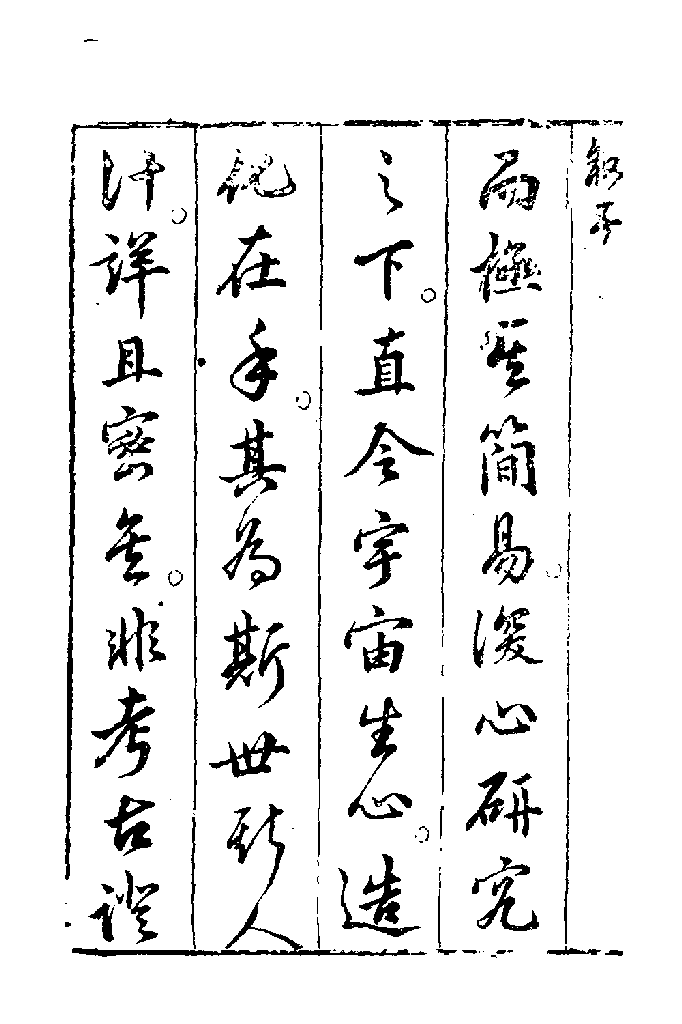 而極至簡易。深心研究
之下。直令宇宙生心。造
化在手。其為斯世斯人
計。詳且密矣。非考古證